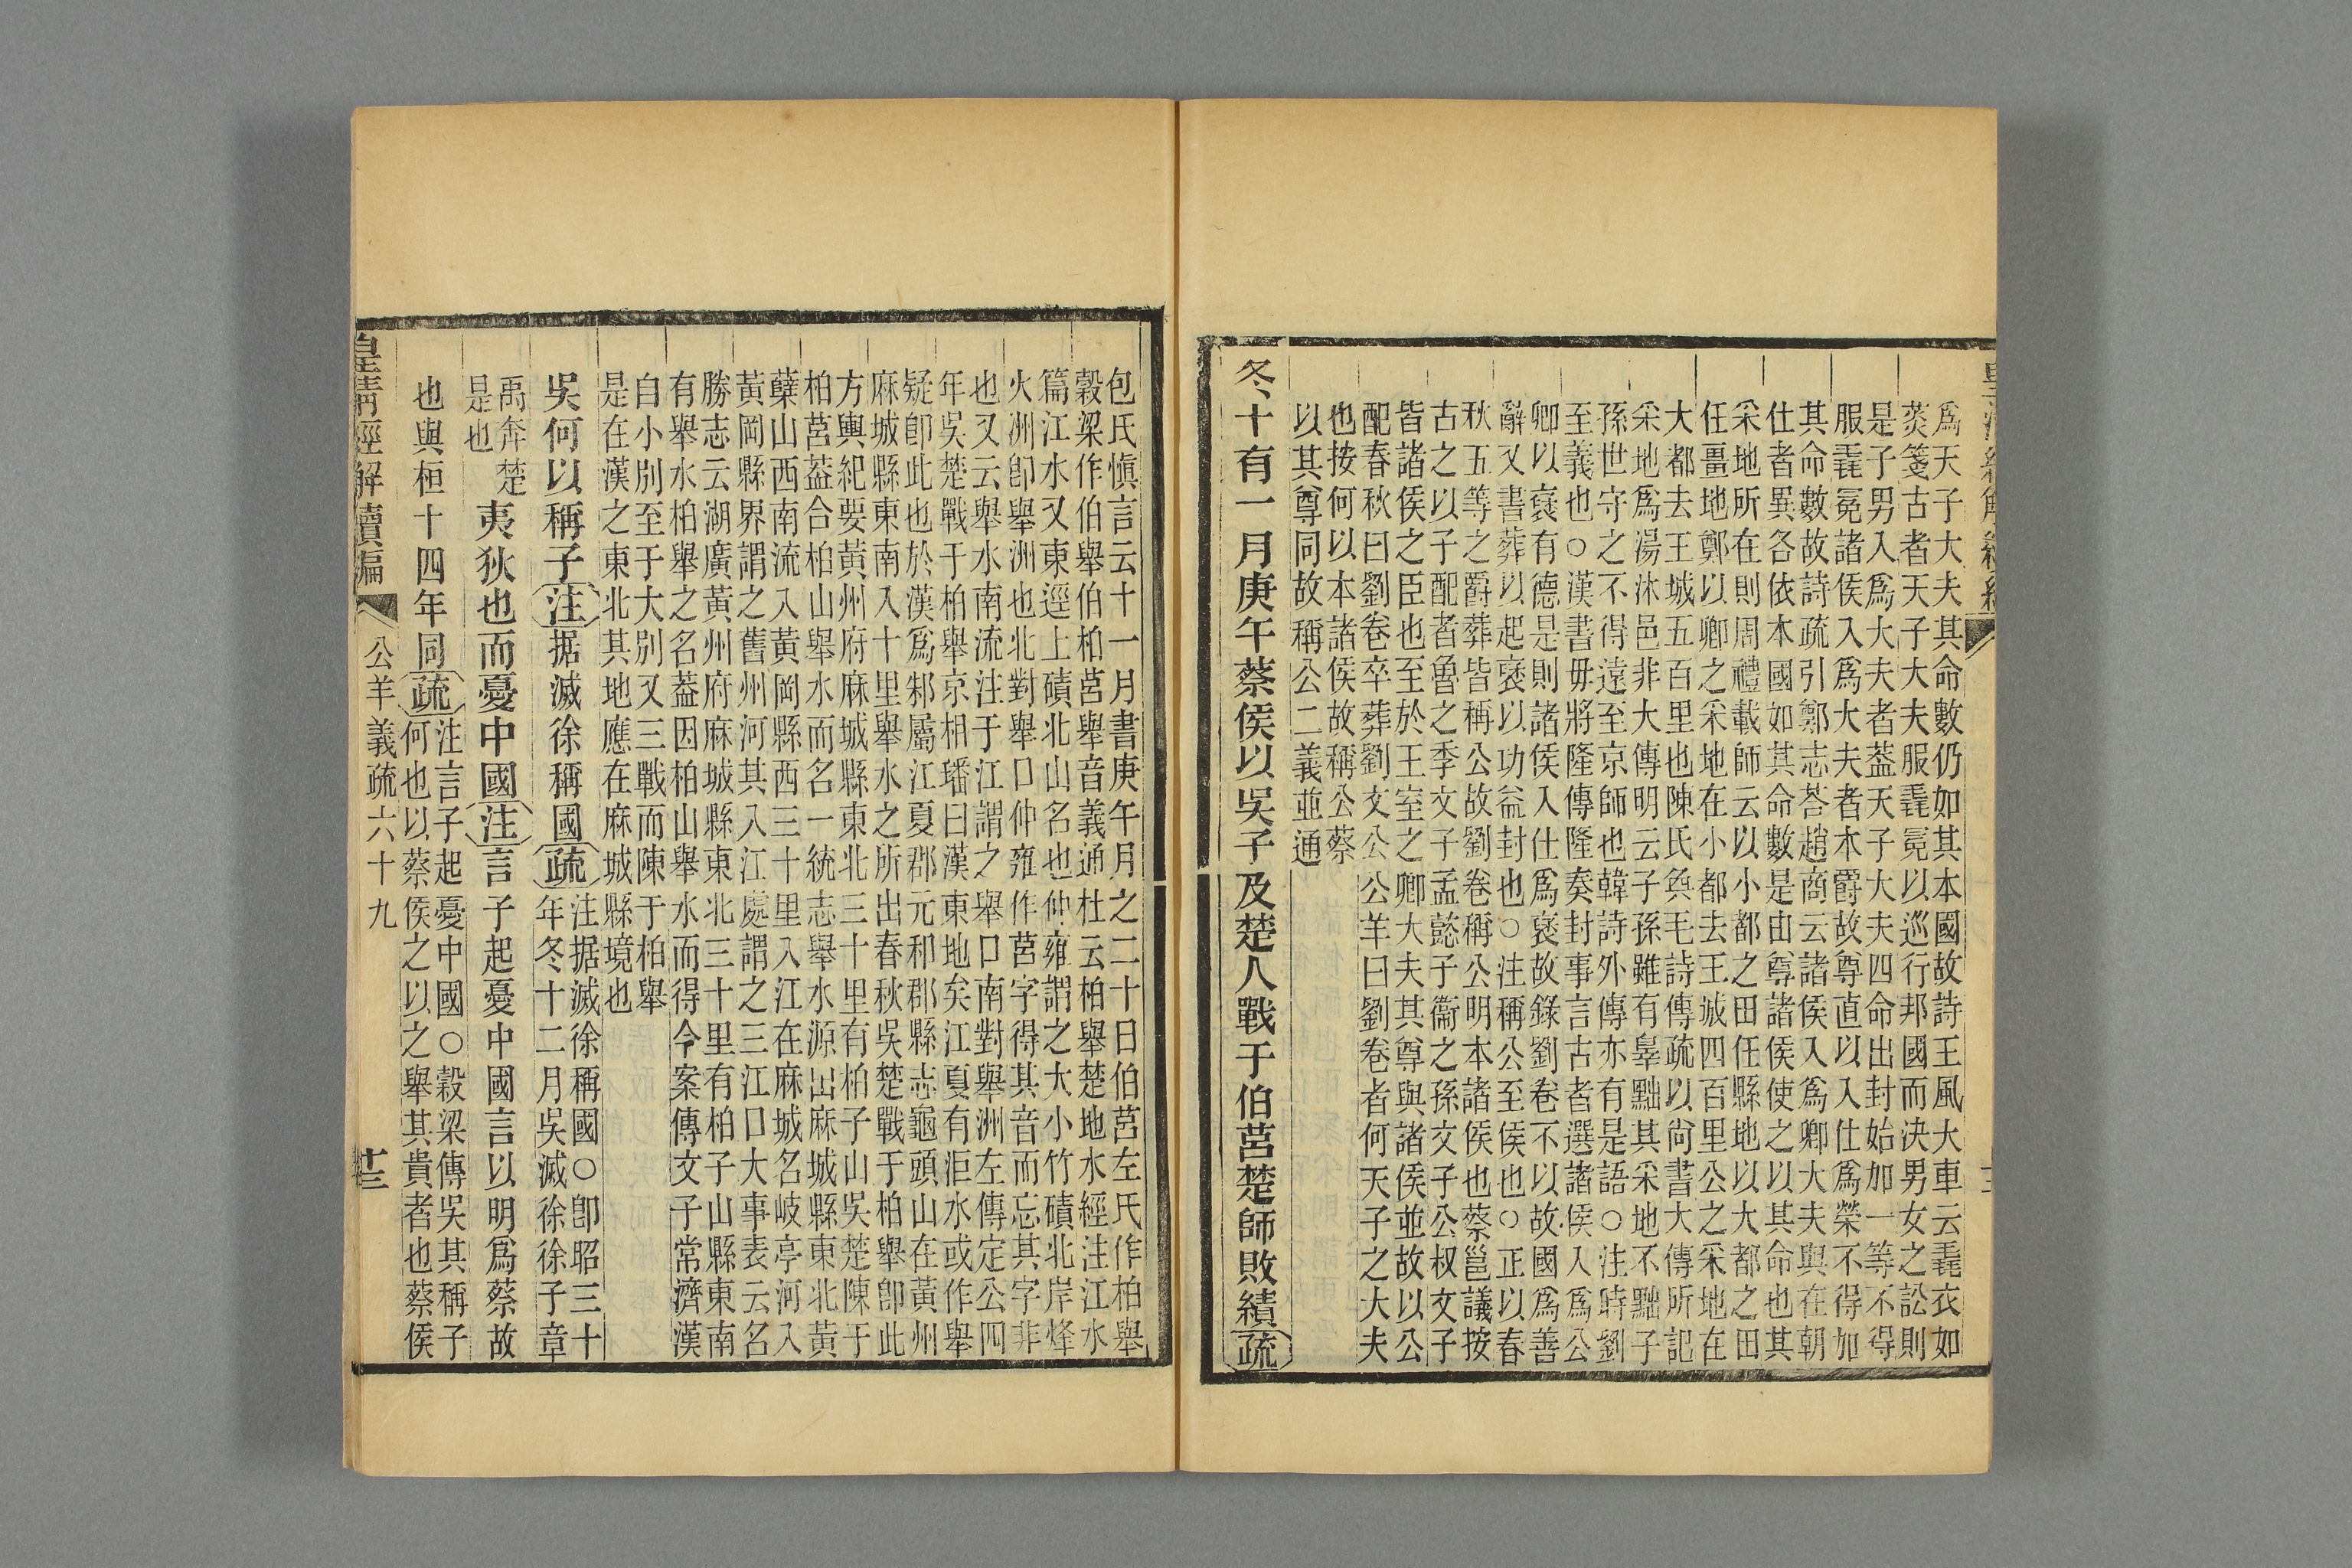 爲天子大夫其命數仍如其本國故詩王風大車云毳衣如
菼箋古者天子大夫服毳冕以巡行邦國而決男女之訟則
是子男入爲大夫者葢天子大夫四命出封始加一等不得
服毳冕諸侯入爲大夫者本爵故尊直以入仕爲榮不得加
其命數故詩疏引鄭志荅趙商云諸侯入爲卿大夫與在朝
仕者異各依本國如其命數是由尊諸侯使之以其命也其
采地所在則周禮載師云以小都之田任縣地以大都之田
任畺地鄭以卿之采地在小都去王城四百里公之采地在
大都去王城五百里也陳氏奐毛詩傳疏以尙書大傳所記
采地爲湯沐邑非大傳明云子孫雖有辠黜其采地不黜子
孫世守之不得遠至京師也韓詩外傳亦有是語○注時劉
至義也○漢書毋將隆傳隆奏封事言古者選諸侯入爲公
卿以襃有德是則諸侯入仕爲襃故錄劉卷不以故國爲善
辭又書葬以起襃以功益封也○注稱公至侯也○正以春
秋五等之爵葬皆稱公故劉卷稱公明本諸侯也蔡邕議按
古之以子配者魯之季文子孟懿子衞之孫文子公叔文子
皆諸侯之臣也至於王室之卿大夫其尊與諸侯並故以公
配春秋曰劉卷卒葬劉文公公羊曰劉卷者何天子之大夫
也按何以本諸侯故稱公蔡
以其尊同故稱公二義並通
冬十有一月庚午蔡侯以吳子及楚人戰于伯莒楚師敗績疏
包氏愼言云十一月書庚午月之二十日伯莒左氏作柏舉
穀梁作伯舉伯柏莒舉音義通杜云柏舉楚地水經注江水
篇江水又東逕上磧北山名也仲雍謂之大小竹磧北岸烽
火洲卽舉洲也北對舉口仲雍作莒字得其音而忘其字非
也又云舉水南流注于江謂之舉口南對舉洲左傳定公四
年吳楚戰于柏舉京相璠曰漢東地矣江夏有洰水或作舉
疑卽此也於漢爲邾屬江夏郡元和郡縣志龜頭山在黃州
麻城縣東南入十里舉水之所出春秋吳楚戰于柏舉卽此
方輿紀要黃州府麻城縣東北三十里有柏子山吳楚陳于
柏莒葢合柏山舉水而名一統志舉水源出麻城縣東北黃
蘗山西南流入黃岡縣西三十里入江在麻城名岐亭河入
黃岡縣界謂之舊州河其入江處謂之三江口大事表云名
勝志云湖廣黃州府麻城縣東北三十里有柏子山縣東南
有舉水柏舉之名葢因柏山舉水而得今案傳文子常濟漢
自小別至于大別又三戰而陳于柏舉
是在漢之東北其地應在麻城縣境也
吳何以稱子注据滅徐稱國疏注据滅徐稱國○卽昭三十
年冬十二月吳滅徐徐子章
禹奔楚
是也
夷狄也而憂中國注言子起憂中國言以明爲蔡故
也與桓十四年同疏注言子起憂中國○穀梁傳吳其稱子
何也以蔡侯之以之舉其貴者也蔡侯
皇清經解續編 公羊義疏六十九 十三